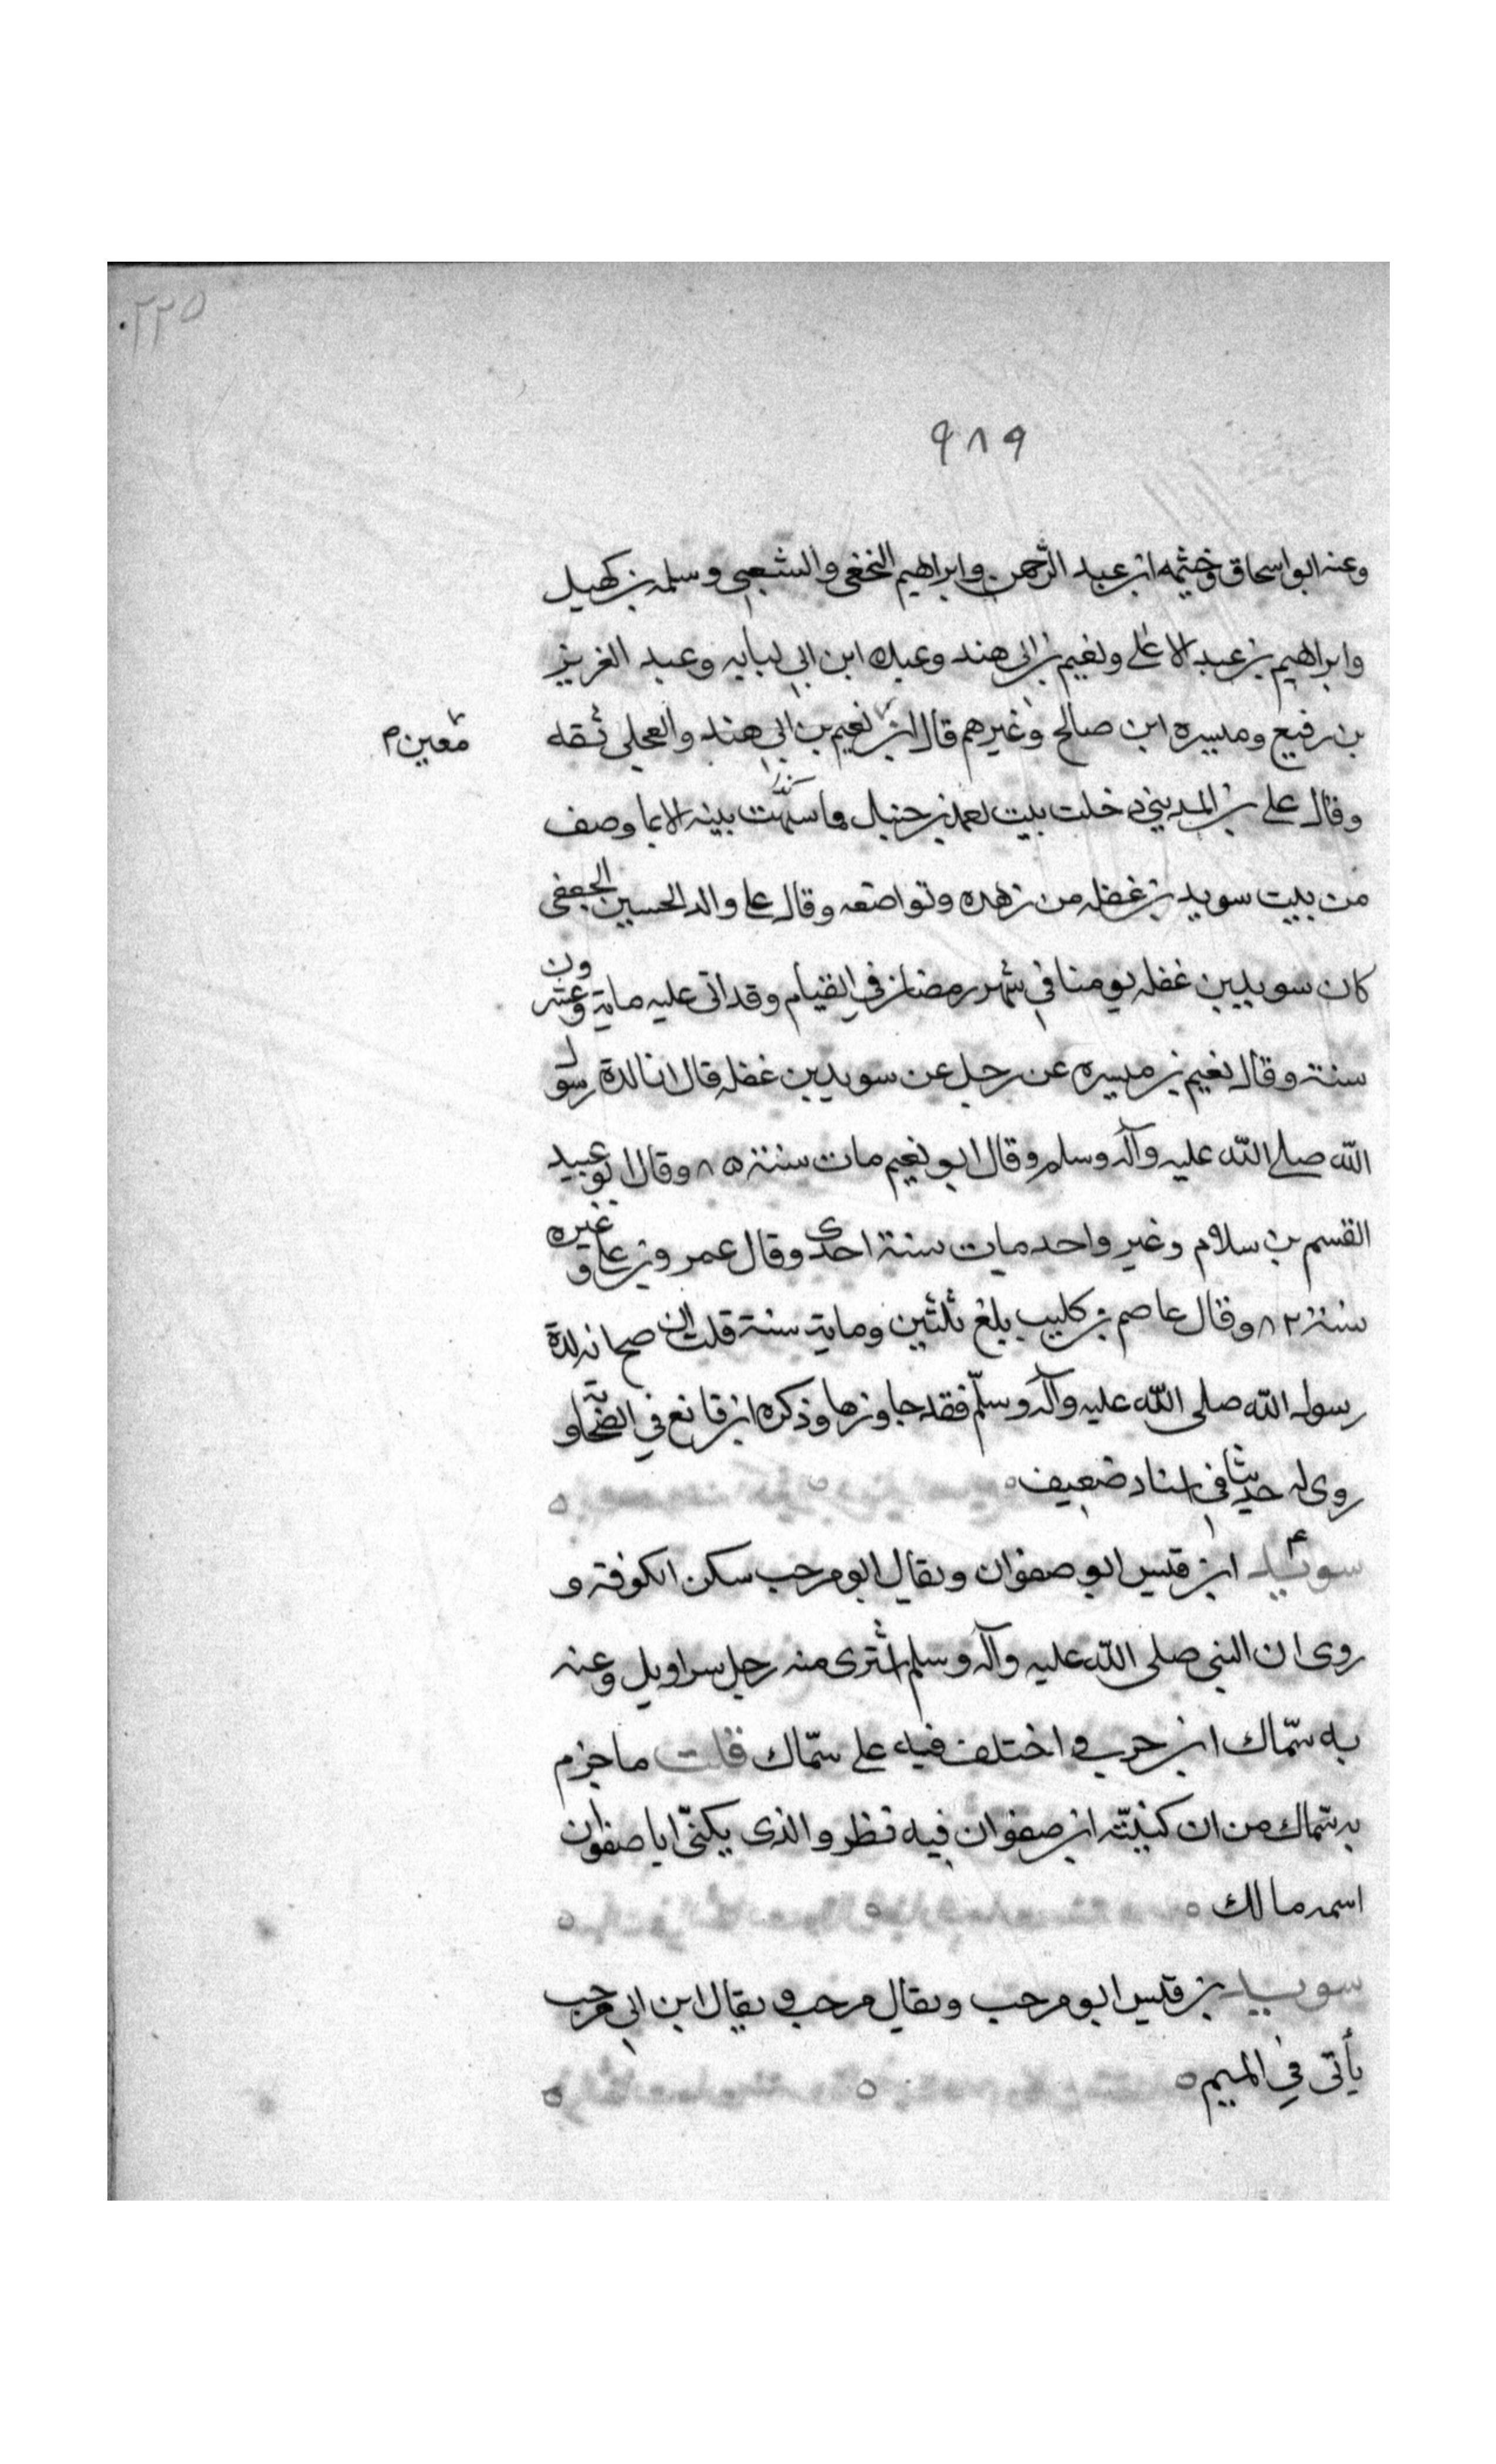 ٢٢٥
٩٨٩
وعنه ابو اسحاق وخيثمه ابن عبد الرحمن وابراهيم النخعى والشعبي وسلمه بن كهيل
وابراهيم بن عبد الاعلى ونعيم بن ابى هند وعبده ابن ابي لبابه وعبد العزيز
بن رفيع وميسره ابن صالح وغيرهم قال ابن نعيم بن ابي هند والعجلى ثقه
معين م
وقال على بن المديني دخلت بيت احمد بن حنبل فما شبهت بيته الا بما وصف
من بيت سويد بن غفله من زهده وتواضعه وقال على والد الحسين الجعفى
كان سويد بن غفله يومنا في شهر رمضان في القيام وقد اتى عليه ماية وعشرون
سنة وقال نعيم بن ميسره عن رجل عن سويد بن غفله قال انا لدة رسول
الله صلى الله عليه وآله وسلم وقال ابو نعيم مات سنة ٨٥ وقال ابو عبيد
القسم بن سلام وغير واحد مات سنة احدى وقال عمرو بن على وغيره
سنة ٨٢ وقال عاصم بن كليب بلغ ثلثين وماية سنة قلت ان صح انه لدة
رسول الله صلى الله عليه وآله وسلّم فقد جاوزها وذكره ابن قانع في الصحابة و
روى له حديثا في اسناد ضعيف ه
سويد ابن قيس ابو صفوان ويقال ابو مرحب سكن الكوفة و
روى ان النبى صلى الله عليه وآله وسلم اشترى منه رجل سراويل وعنه
به سمّاك ابن حرب واختلف فيه على سمّاك قلت ما جزم
به سمّاك من ان كنيته ابن صفوان فيه نظر والذى يكنّى ابا صفوان
اسمه مالك ه
سويد بن قيس ابو مرحب ويقال مرحب ويقال ابن ابي مرحب
يأتى في الميم ه